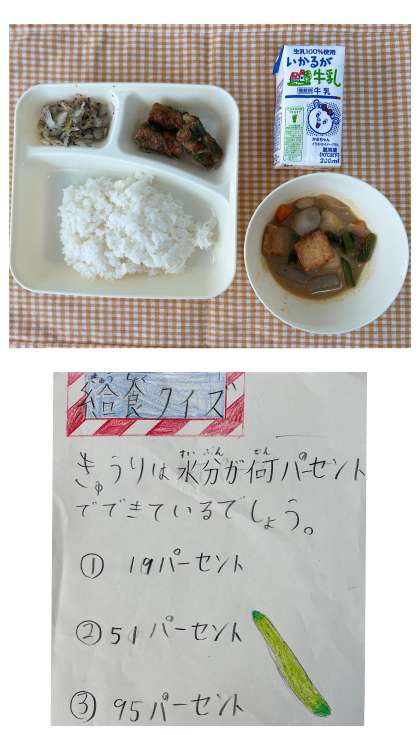 生乳100%使用
いかるが
牛乳
種類別 牛乳
要冷蔵
200ml
きゅうしょく
給食クイズ
すいぶん なん
きゅうりは水分が何パーセント
でできているでしょう。
① 19パーセント
② 51パーセント
③ 95パーセント